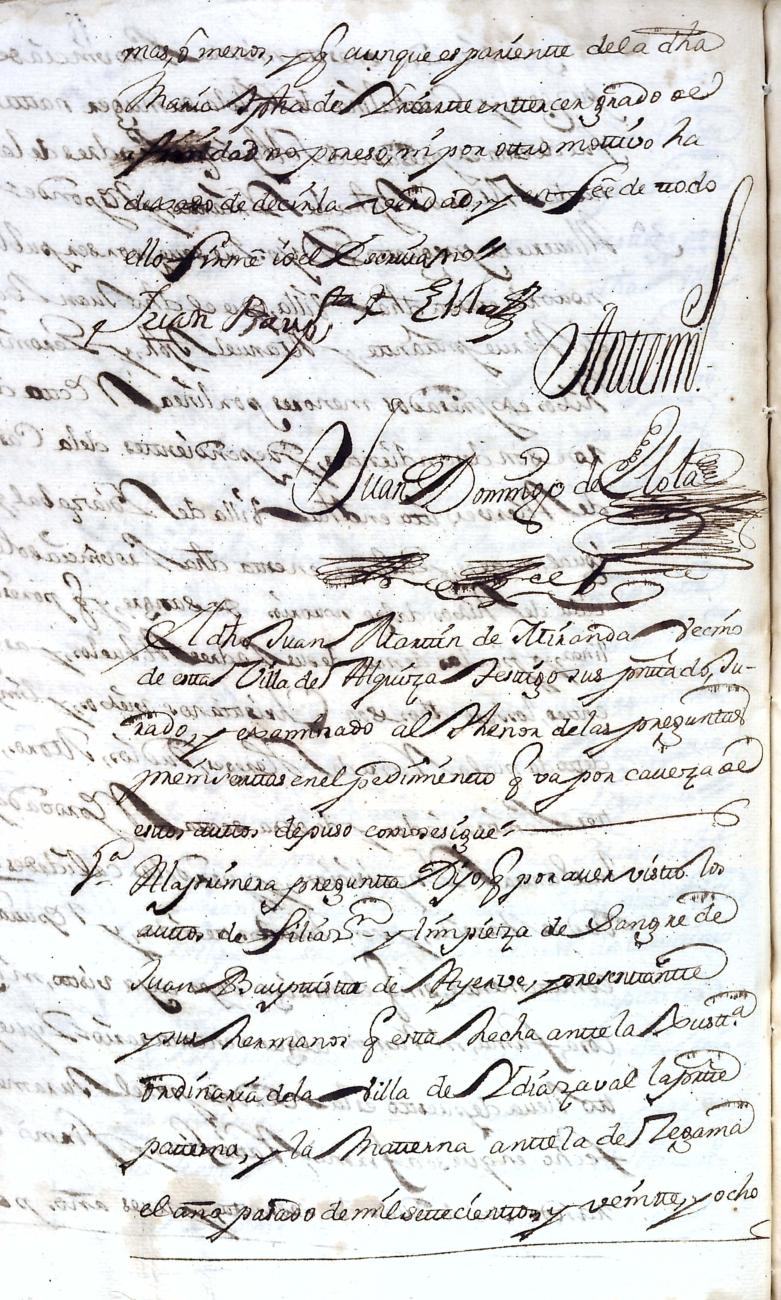 mas, ô menos, y q̃ aunque es pariente de la dha
Maria Jpha de Iriarte en tercer grado de
afinidad no por eso, ni por otro motiuo ha
dejado de decir la verdad, y en fee de todo
ello firmè io el Escriuano
Juan Baup,ta
Antemi
Juan Domingo de
El dho Juan Martin de Miranda vecino
de esta Villa de Alquiza testigo sus prntado, Ju-
rado, y examinado al thenor de las preguntas
premisertas en el pedimento q̃ va por caueza de
estos autos depuso como se sigue
1.a A la primera pregunta Dijo, q̃ por auer visto los
autos de filiaz.on y limpieza de Sangre de
Juan Bauptista de Ayerue, presentante
y sus hermanos q̃ esta hecha ante la Justt.a
ordinaria de la villa de Ydiazaual la prtte
paterna, y la Materna ante la de Zegama
el año pasado de mil settecientos, y veintte, y ocho